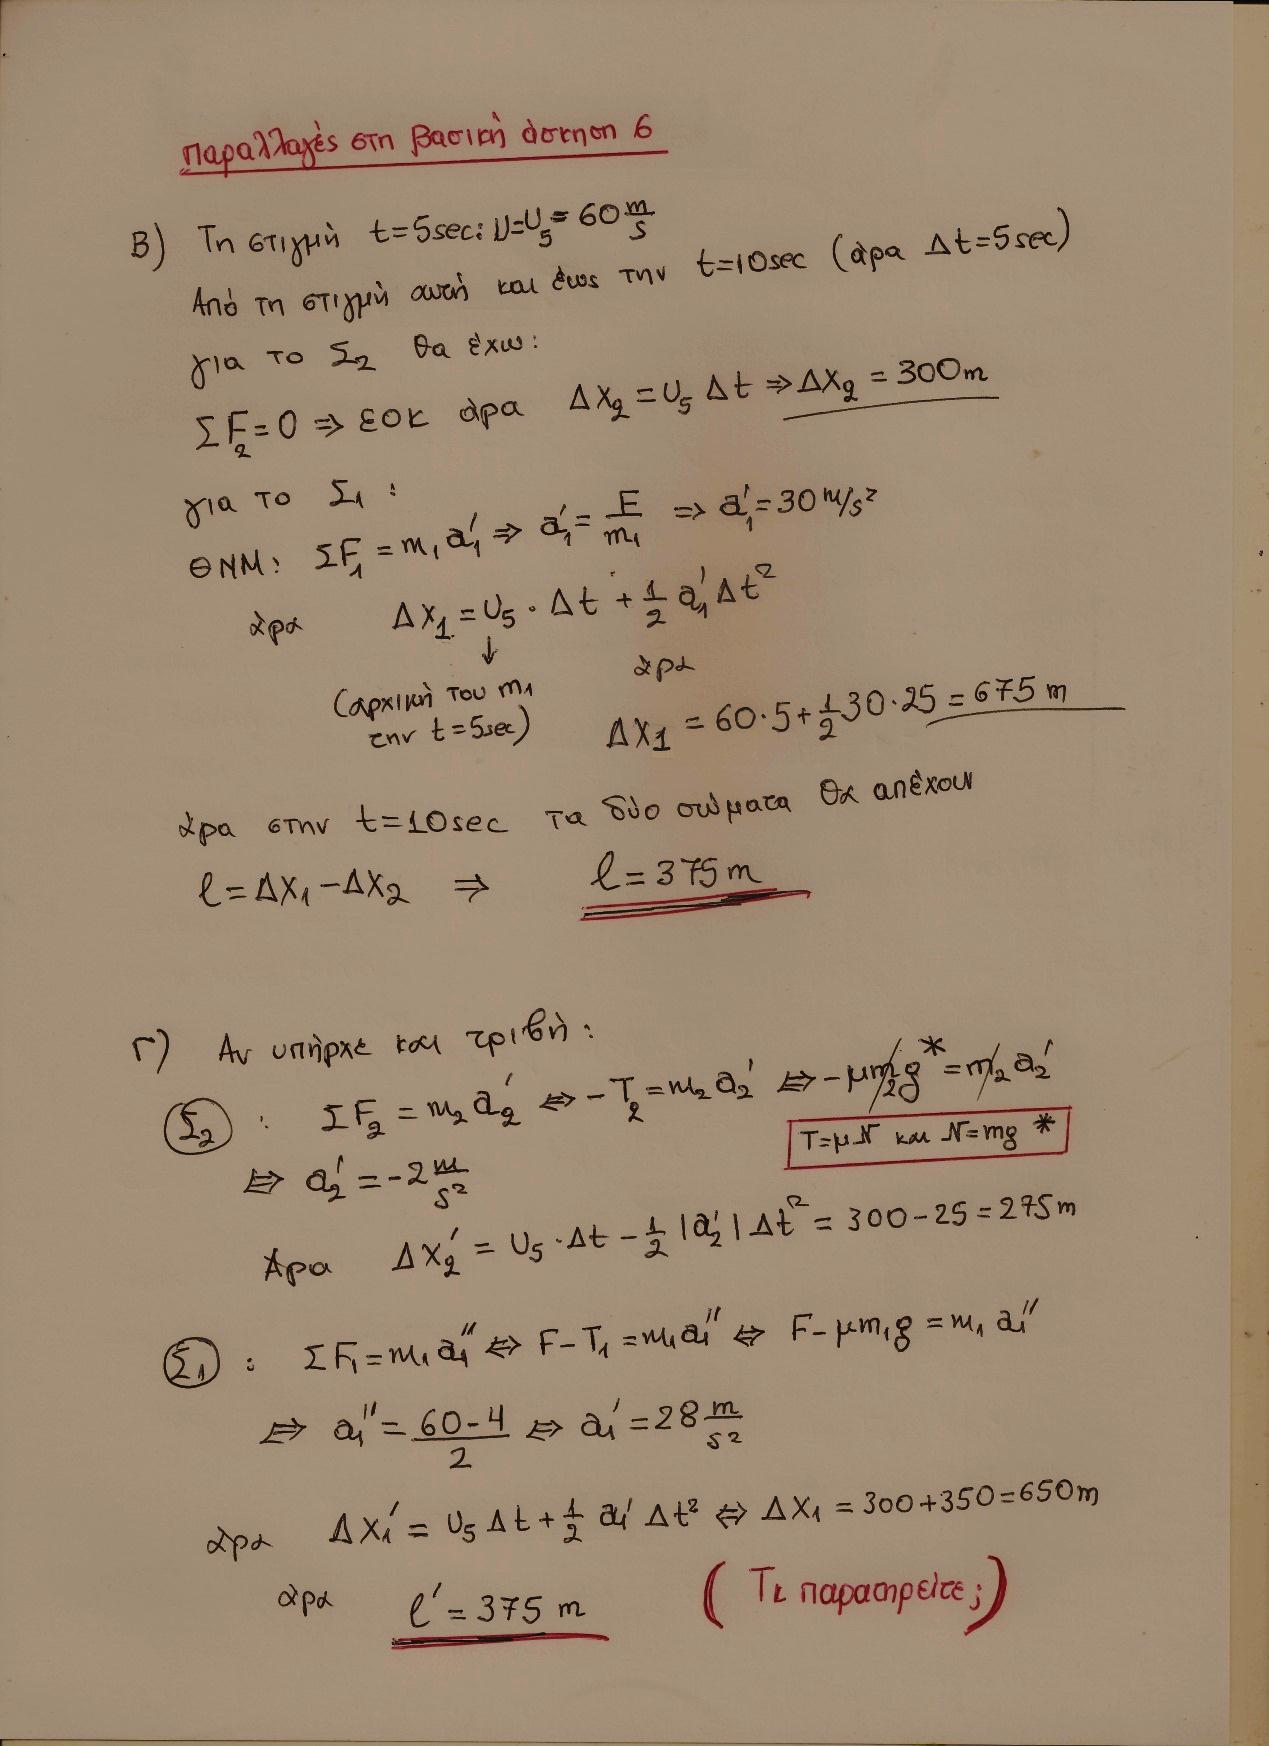 Παραλλαγές στη βασική άσκηση 6
Β) Τη στιγμή t=5sec: υ=υ₅=60 m/s
Από τη στιγμή αυτή και έως την t=10sec (άρα Δt=5sec)
για το Σ₂ θα έχω:
ΣF₂=0 ⇒ ΕΟΚ άρα Δx₂=υ₅ Δt ⇒ Δx₂=300m
για το Σ₁:
ΘΝΜ: ΣF₁=m₁a₁' ⇒ a₁'=F/m₁ ⇒ a₁'=30m/s²
άρα Δx₁=υ₅·Δt+1/2 a₁'Δt²
↓
(αρχική του m₁
την t=5sec)
άρα
Δx₁=60·5+1/2 30·25=675m
άρα στην t=10sec τα δύο σώματα θα απέχουν
l=Δx₁-Δx₂ ⇒ l=375m
Γ) Αν υπήρχε και τριβή:
Σ₂ : ΣF₂=m₂a₂' ⇔ -T₂=m₂a₂' ⇔ -μm₂g*=m₂a₂'
T=μN και N=mg *
⇔ a₂'=-2 m/s²
Άρα Δx₂'=υ₅·Δt-1/2|a₂'|Δt²=300-25=275m
Σ₁ : ΣF₁=m₁a₁'' ⇔ F-T₁=m₁a₁'' ⇔ F-μm₁g=m₁a₁''
⇔ a₁''=60-4/2 ⇔ a₁'=28 m/s²
άρα Δx₁'=υ₅Δt+1/2 a₁'Δt² ⇔ Δx₁=300+350=650m
άρα l'=375m (Τι παρατηρείτε;)